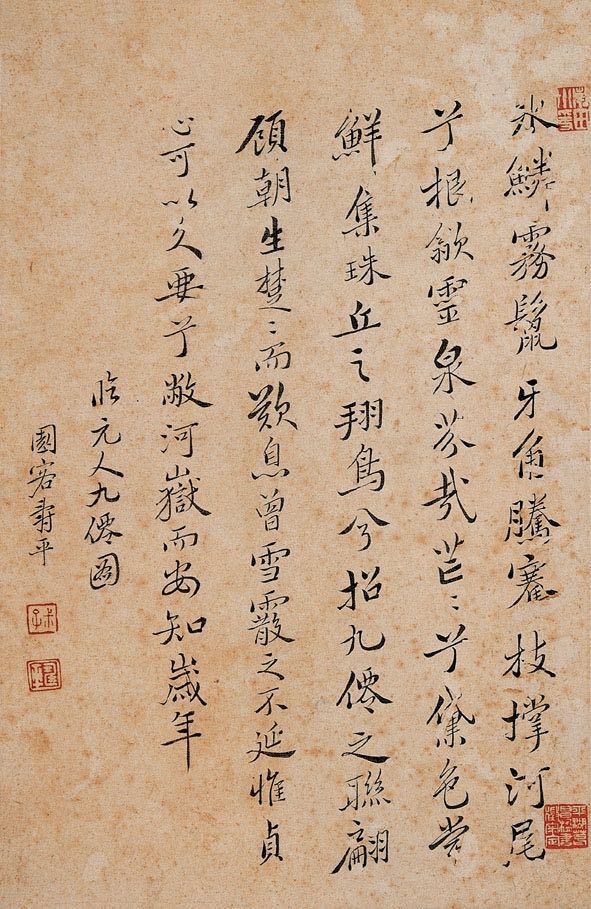 冰鱗霧鬣牙角騰騫枝撐河尾
兮根歙靈泉芬哉芒〻兮黛色常
鮮集珠丘之翔鳥兮招九僊之聯翩
顧朝生楚〻而歎息曾雪霰之不延惟貞
心可以久要兮敝河嶽而安知歲年
臨元人九僊圖
園客壽平